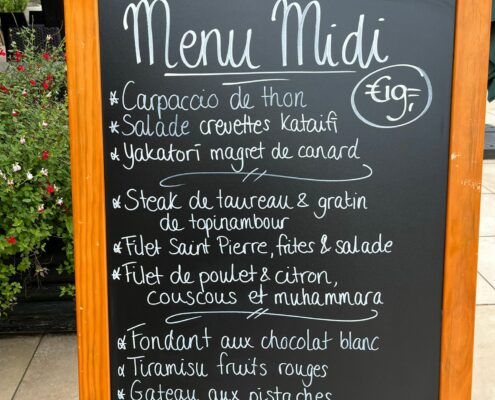 Menu Midi
€19,-
*Carpaccio de thon
*Salade crevettes Kataifi
*Yakatori magret de canard
*Steak de taureau & gratin
de topinambour
*Filet Saint Pierre, frites & salade
*Filet de poulet & citron,
couscous et muhammara
*Fondant aux chocolat blanc
*Tiramisu fruits rouges
*Gateau aux pistaches